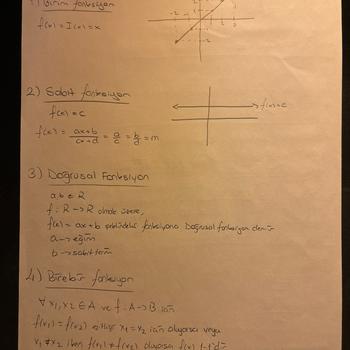 1) Birim fonksiyon
f(x) = I(x) = x
-2
2
-2
2) Sabit fonksiyon
f(x) = c
f(x) = c
f(x) = ax+b / cx+d = a/c = b/d = m
3) Doğrusal Fonksiyon
a, b ∈ R
f: R → R olmak üzere,
f(x) = ax+b şeklindeki fonksiyona Doğrusal fonksiyon denir
a → eğim
b → sabit terim
4) Birebir fonksiyon
∀ x₁, x₂ ∈ A ve f: A → B için
f(x₁) = f(x₂) x₁ = x₂ için oluyorsa veya
x₁ ≠ x₂ iken f(x₁) ≠ f(x₂) oluyorsa f(x) 1-1'dir